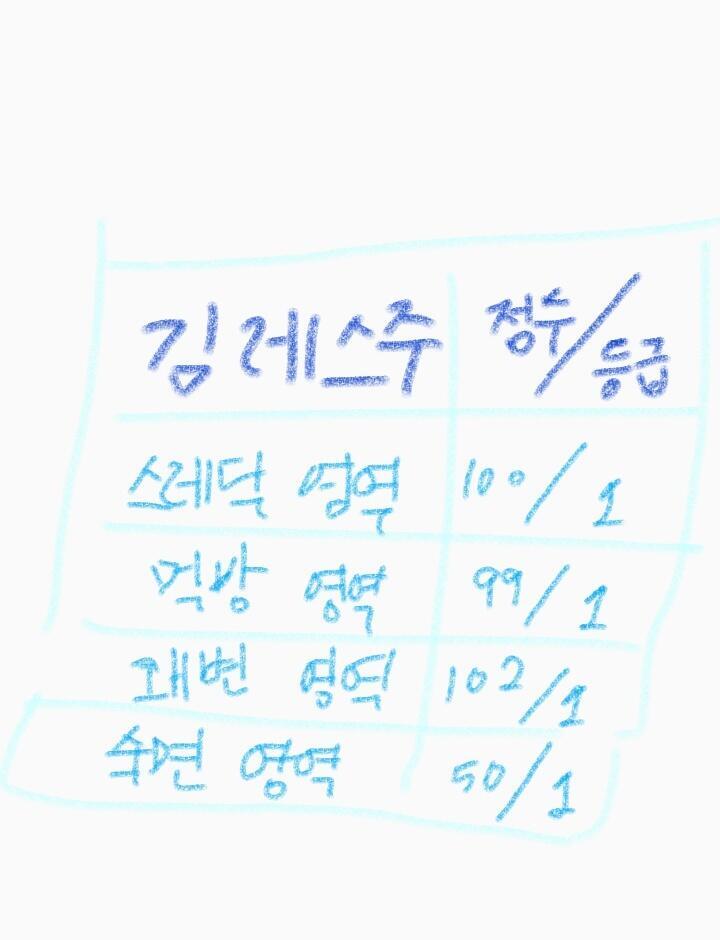 김레스주 점수/등급
스레딕 영역 100/1
먹방 영역 99/1
괘변 영역 102/1
수면 영역 50/1